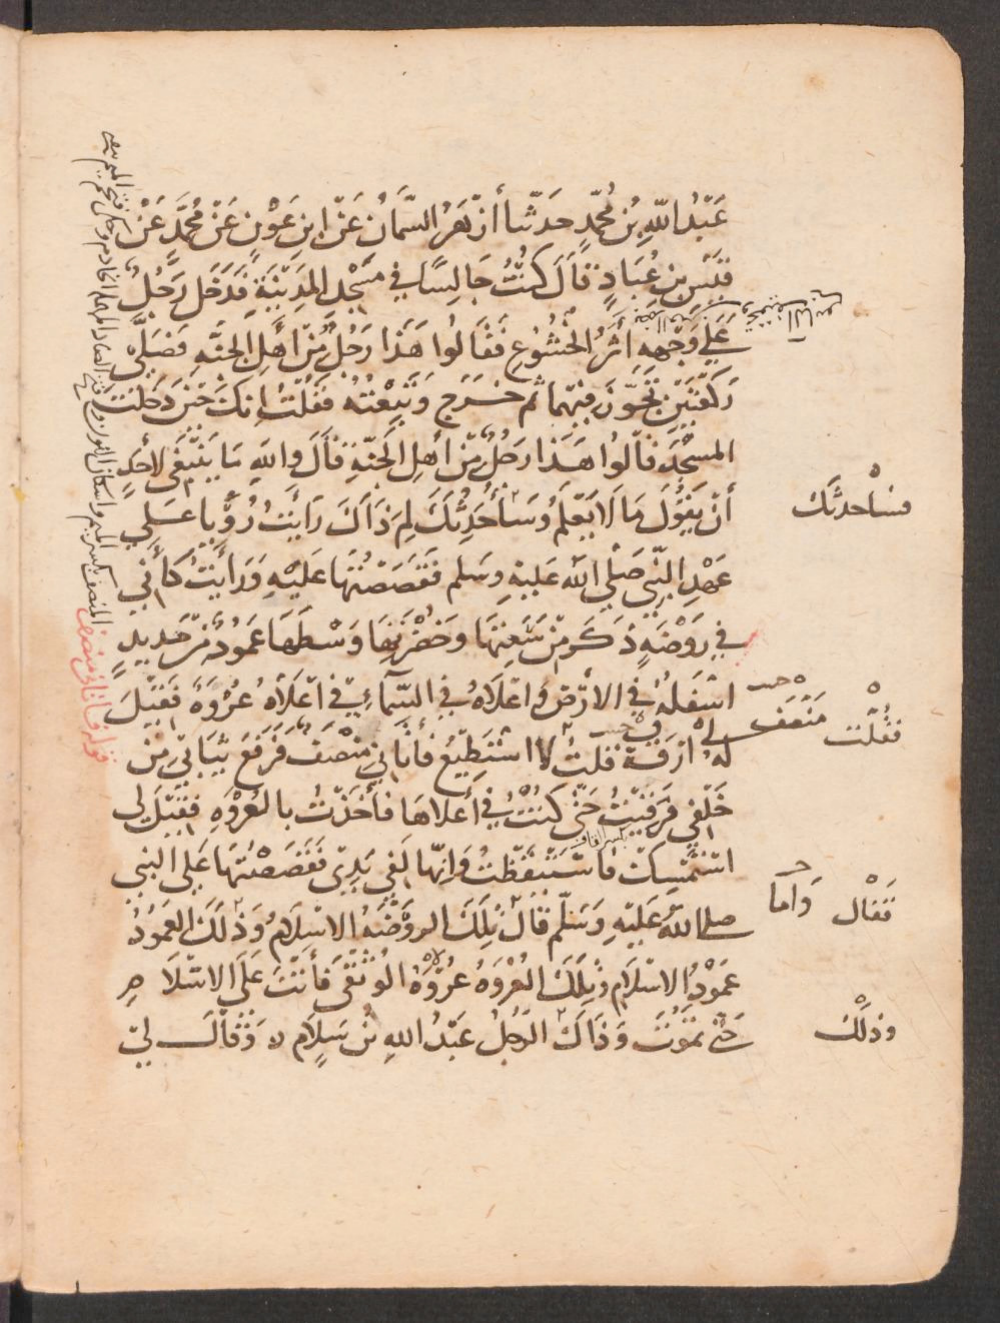 عَبْدُ اللهِ بْنُ مُحَمَّدٍ حدثنا أَزْهَرُ السَّمَّانُ عَنْ ابْنِ عَوْنٍ عَنْ مُحَمَّدٍ عَنْ
قَيْسِ بْنِ عُبَادٍ قَالَ كُنْتُ جَالِسًا فِي مَسْجِدِ المَدِيْنَةِ فَدَخَلَ رَجُلٌ
عَلَى وَجْهِهِ أَثَرُ الْخُشُوْعِ فَقَالُوا هَذَا رَجُلٌ مِنْ أَهْلِ الجَنَّةِ فَصَلَّى
رَكْعَتَيْنِ تَجَوَّزَ فِيْهِمَا ثم خَرَجَ وَتَبِعْتُهُ فَقُلْتُ إِنَّكَ حِيْنَ دَخَلْتَ
المسْجِدَ قَالُوا هَذَا رَجُلٌ مِنْ أَهْلِ الجَنَّةِ قَالَ وَاللهِ مَا يَنْبَغِي لأَحَدٍ
أَنْ يَقُوْلَ مَا لَا يَعْلَمُ وَسَأُحَدِّثُكَ لِمَ ذَاكَ رَأَيْتُ رُؤْيَا عَلَى
عَهْدِ النَّبِيِّ صَلَّى اللهُ عَلَيْهِ وسَلم فَقَصَصْتُهَا عَلَيْهِ وَرَأَيْتُ كَأَنِّي
فِي رَوْضَةٍ ذَكَرَ مِنْ سَعَتِهَا وَخُضْرَتِهَا وَسْطَهَا عَمُودٌ مِنْ حَدِيدٍ
اسْفَلُهُ فِي الارْضِ وَاعْلَاهُ فِي السَّمَاءِ فِي اعْلَاهُ عُرْوَةٌ فَقِيْلَ
لَهُ ارْقَهْ قلْتُ لَا اسْتَطِيْعُ فأَتَانِي مِنْصَفٌ فَرَفَعَ ثِيَابِي مِنْ
خَلْفِي فَرَقِيْتُ حَتَّى كُنْتُ فِي أَعْلَاهَا فَأَخَذْتُ بالعُرْوَةِ فَقِيْلَ لِي
اسْتَمْسِكْ فَاسْتَيْقَظْتُ وَإِنَّهَا لَفِي يَدِي فَقَصَصْتُهَا عَلَى النبي
صلى اللهُ عَلَيْهِ وَسَلَّم قَالَ تِلْكَ الروْضَةُ الاسْلَامُ وَذَلِكَ العَمُوْدُ
عَمُوْدُ الاسْلَامِ وَتِلْكَ العُرْوَةُ عُرْوَةُ الوُثْقَى فَأَنْتَ عَلَى الاسْلَامِ
حَتَّى تَمُوْتَ وَذَاكَ الرَّجُلُ عَبْدُ اللهِ بْنُ سَلَامٍ ه وَقَالَ لِي
فسأحدثك
فَقُلْت
مَنْصَف
فَقَال
وَاما
وذلك